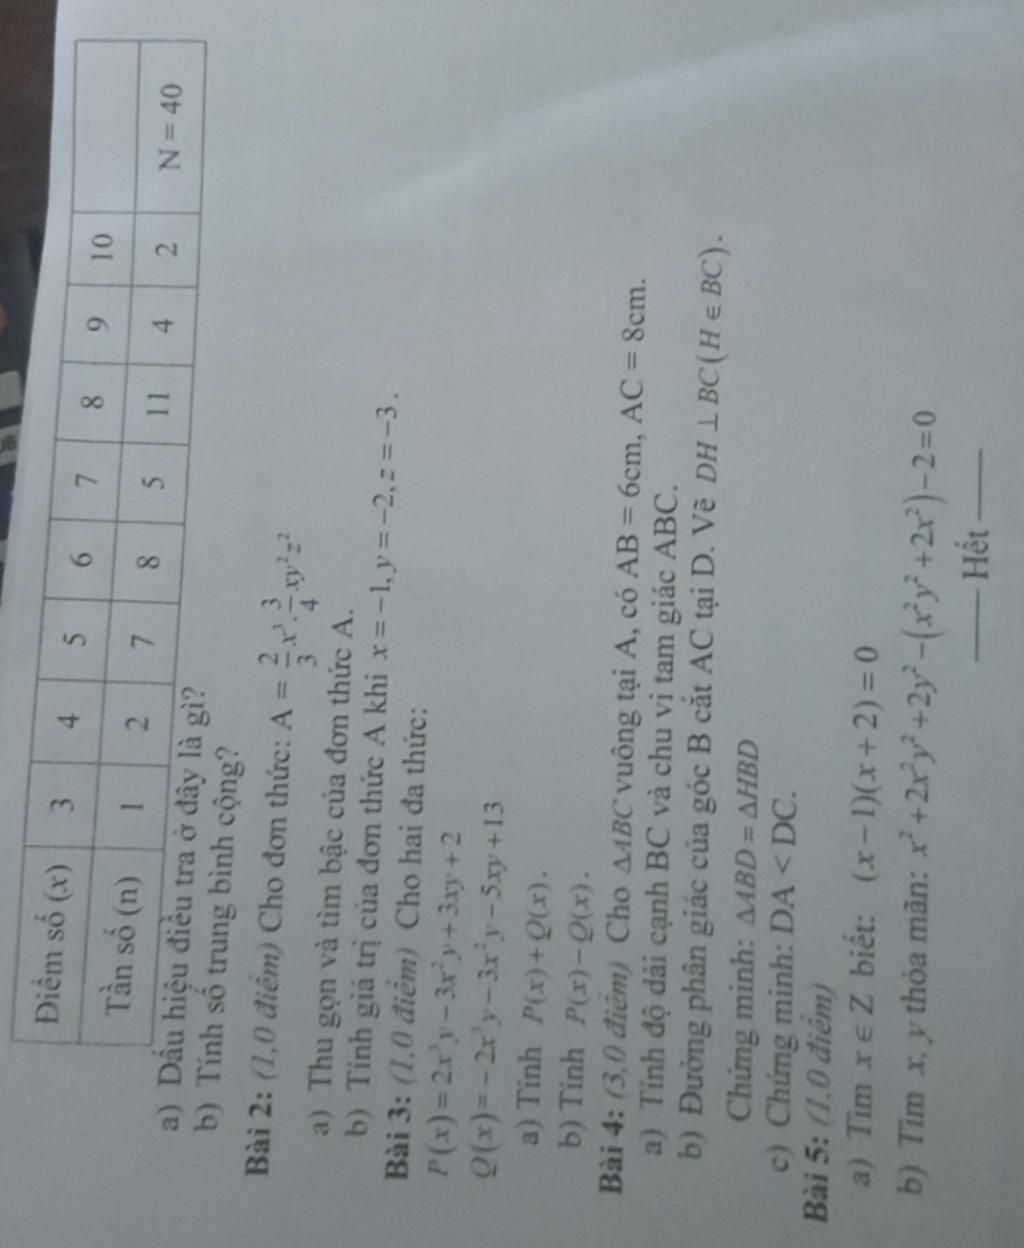 Điểm số (x) 3 4 5 6 7 8 9 10
Tần số (n) 1 2 7 8 5 11 4 2 N = 40
a) Dấu hiệu điều tra ở đây là gì?
b) Tính số trung bình cộng?
Bài 2: (1,0 điểm) Cho đơn thức: A = 2/3 x³ . 3/4 xy²z²
a) Thu gọn và tìm bậc của đơn thức A.
b) Tính giá trị của đơn thức A khi x = −1, y = −2, z = −3.
Bài 3: (1,0 điểm) Cho hai đa thức:
P(x) = 2x³y − 3x²y + 3xy + 2
Q(x) = −2x³y − 3x²y − 5xy + 13
a) Tính P(x) + Q(x).
b) Tính P(x) − Q(x).
Bài 4: (3,0 điểm) Cho ΔABC vuông tại A, có AB = 6cm, AC = 8cm.
a) Tính độ dài cạnh BC và chu vi tam giác ABC.
b) Đường phân giác của góc B cắt AC tại D. Vẽ DH ⊥ BC (H ∈ BC).
Chứng minh: ΔABD = ΔHBD
c) Chứng minh: DA < DC.
Bài 5: (1,0 điểm)
a) Tìm x ∈ Z biết: (x − 1)(x + 2) = 0
b) Tìm x, y thỏa mãn: x² + 2x²y² + 2y² − (x²y² + 2x²) − 2 = 0
—— Hết ——